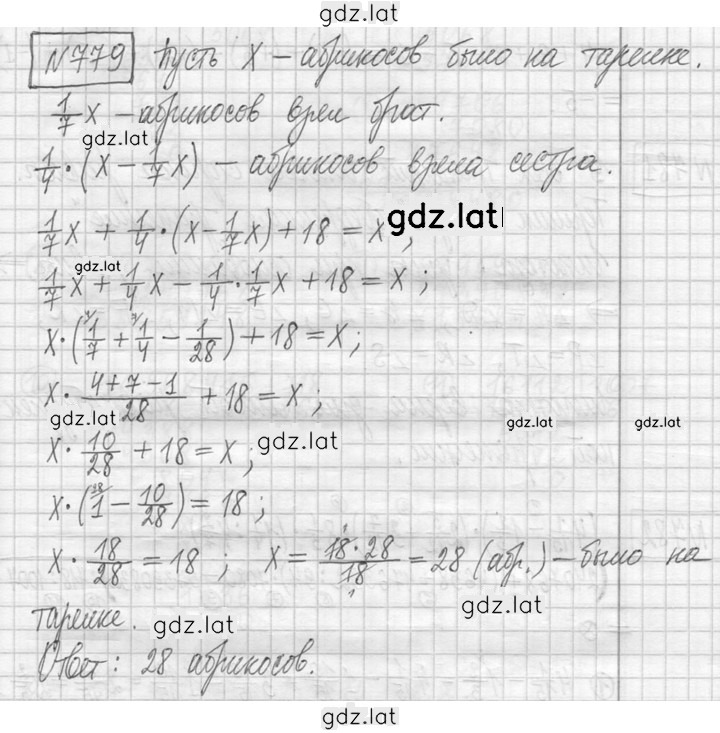 gdz.lat
№779 Пусть x – абрикосов было на тарелке.
1/7 x – абрикосов взял брат.
gdz.lat
1/4 · (x – 1/7 x) – абрикосов взяла сестра.
1/7 x + 1/4 · (x – 1/7 x) + 18 = x ;
gdz.lat
gdz.lat
1/7 x + 1/4 x – 1/4 · 1/7 x + 18 = x ;
x · (1/7 + 1/4 – 1/28) + 18 = x ;
x · (4+7–1)/28 + 18 = x ;
gdz.lat gdz.lat gdz.lat
x · 10/28 + 18 = x ;
gdz.lat
x · (1 – 10/28) = 18 ;
x · 18/28 = 18 ; x = (18 · 28)/18 = 28 (абр.) – было на
gdz.lat
тарелке.
gdz.lat
Ответ: 28 абрикосов.
gdz.lat